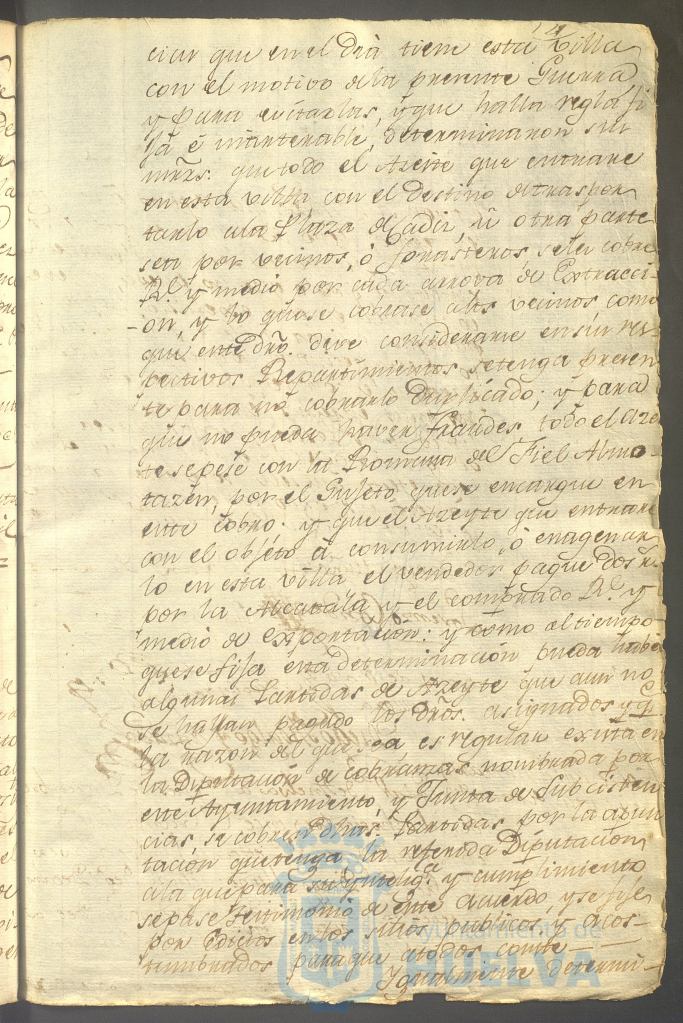 ciar que en el dia tiene esta Villa
con el motivo de la presente Guerra
y para evitarlas, y que halla regla fi
ja é inalterable, determinaron sus
mrzs: que todo el Azeite que entrare
en esta villa con el destino de traspor
tarlo ala Plaza de Cadiz, ú otra parte
sea por vecinos, ó forasteros se les cobre
Rl. y medio por cada arrova de Extracci
on, y lo que se cobrase a los vecinos como
que este dro. deve considerarse en sus res
pectivos Repartimientos se tenga presen
te para no cobrarlo duplicado; y para
que no pueda haver fraudes todo el Aze
te se pese con la Romana del Fiel Almo
tazen, por el Sujeto que se encargue en
este cobro: y que el Azeyte que entrare
con el objeto de consumirlo, ó enagenar
lo en esta villa el vendedor pague dos rs.
por la Alcavala y el comprador Rl. y
medio de exportacion: y como al tiempo
que se fija esta determinacion pueda haber
algunas Partidas de Azeyte que aun no
se hallan pagado los dros. asignados y q.
la razon del que sea es regular exista en
la Diputacion de cobranzas nombrada por
este Ayuntamiento, y Junta de Subcisten
cias, se cobren dhas. Partidas por la apun
tacion que tenga la referida Diputacion
ala que para su yntelig.a y cumplimiento
se pase testimonio de este acuerdo y se fije
por Edictos en los sitios publicos y acos-
tumbrados para que atodos conste
Ygualmente determi-
Ayuntamiento de
HUELVA